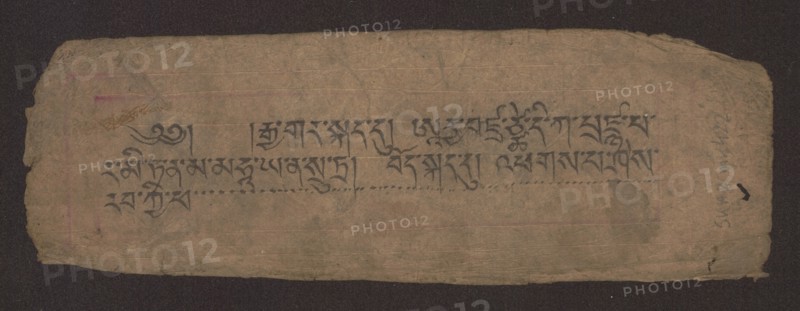 ༄༅། །རྒྱ་གར་སྐད་དུ། ཨཱརྱ་བཛྲ་ཙྪེ་དི་ཀ་པྲཛྙཱ་པ་
ར་མི་ཏ་ན་མ་མ་ཧཱ་ཡ་ན་སུ་ཏྲ། བོད་སྐད་དུ། འཕགས་པ་ཤེས་
རབ་ཀྱི་ཕ